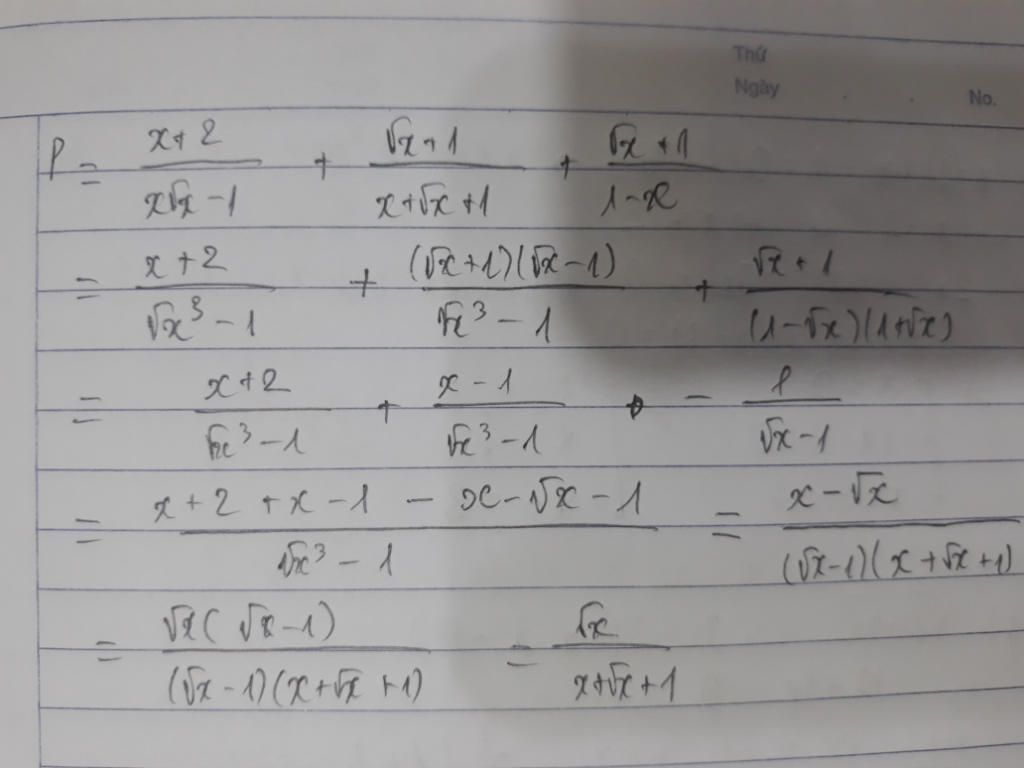 Thứ
Ngày . . No.
P = \frac{x+2}{x\sqrt{x}-1} + \frac{\sqrt{x}+1}{x+\sqrt{x}+1} + \frac{\sqrt{x}+1}{1-x}
= \frac{x+2}{\sqrt{x}^3-1} + \frac{(\sqrt{x}+1)(\sqrt{x}-1)}{\sqrt{x}^3-1} + \frac{\sqrt{x}+1}{(1-\sqrt{x})(1+\sqrt{x})}
= \frac{x+2}{\sqrt{x}^3-1} + \frac{x-1}{\sqrt{x}^3-1} - \frac{1}{\sqrt{x}-1}
= \frac{x+2+x-1-x-\sqrt{x}-1}{\sqrt{x}^3-1} = \frac{x-\sqrt{x}}{(\sqrt{x}-1)(x+\sqrt{x}+1)}
= \frac{\sqrt{x}(\sqrt{x}-1)}{(\sqrt{x}-1)(x+\sqrt{x}+1)} = \frac{\sqrt{x}}{x+\sqrt{x}+1}